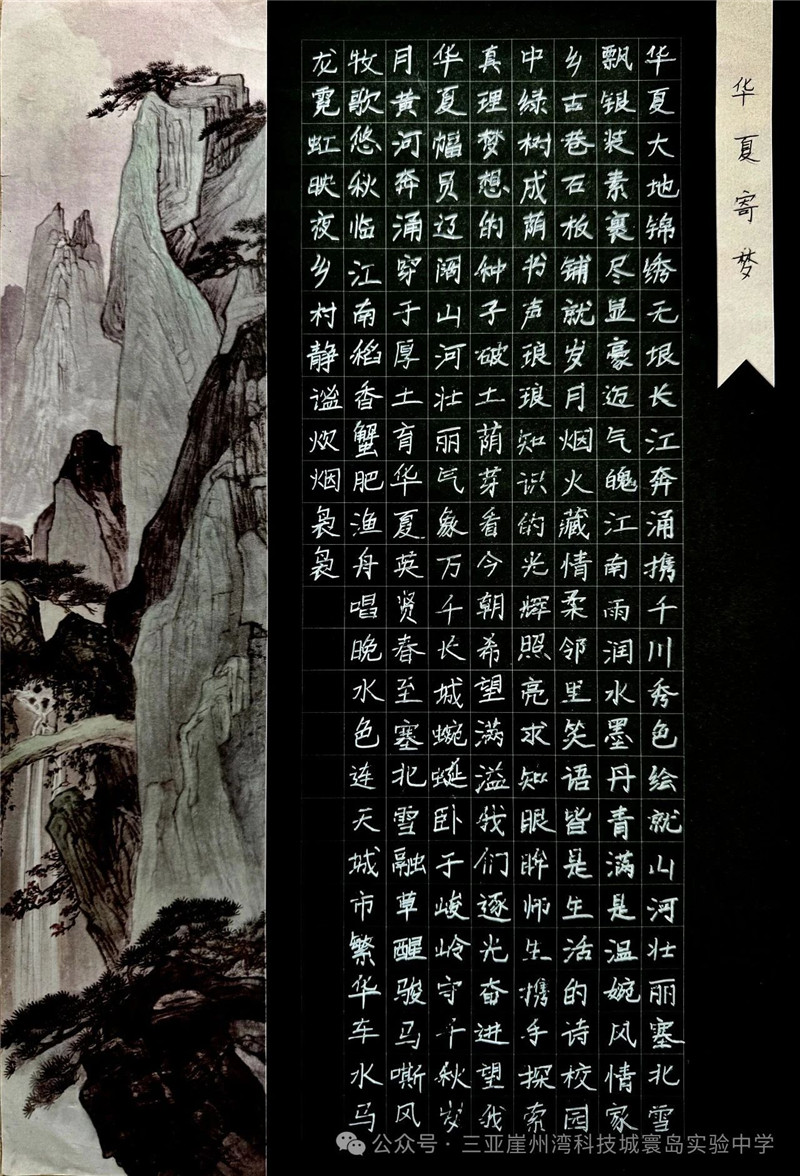 华夏寄梦
华夏大地锦绣无垠长江奔涌携千川秀色绘就山河壮丽塞北雪
飘银装素裹尽显豪迈气魄江南雨润水墨丹青满是温婉风情家
乡古巷石板铺就岁月烟火藏情柔邻里笑语皆是生活的诗校园
中绿树成荫书声琅琅知识的光辉照亮求知眼眸师生携手探索
真理梦想的种子破土荫芽看今朝希望满溢我们逐光奋进望我
华夏幅员辽阔山河壮丽气象万千长城蜿蜒卧于峻岭守千秋岁
月黄河奔涌穿于厚土育华夏英贤春至塞北雪融草醒骏马嘶风
牧歌悠秋临江南稻香蟹肥渔舟唱晚水色连天城市繁华车水马
龙霓虹映夜乡村静谧炊烟袅袅
公众号·三亚崖州湾科技城寰岛实验中学